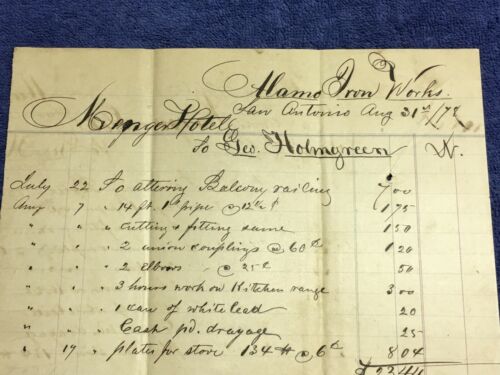 Alamo Iron Works.
San Antonio Aug 31st/78
Menger Hotel
To Geo. Holmgreen
July 22 To altering Balcony railing 7 00
Aug 7 " 14 ft. 1" pipe @ 12½ ¢ 1 75
" " " Cutting & fitting same 1 50
" " " 2 union couplings @ 60 ¢ 1 20
" " " 2 Elbows @ 25 ¢ 50
" " " 3 hours work on Kitchen range 3 00
" " " 1 can of white lead 20
" " " Cash pd. drayage 25
" 17 " plates for stove 134 # @ 6 ¢ 8 04
$23 44